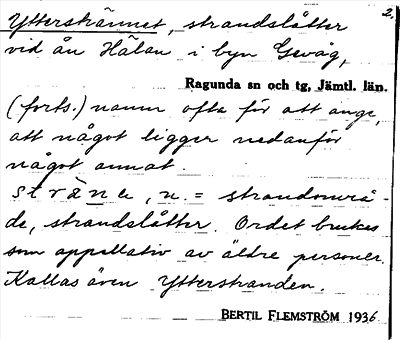 2.
Ytterstrännet, strandslåtter
vid ån Hälan i byn Gevåg,
Ragunda sn och tg, Jämtl. län.
(forts.) namn ofta för att ange,
att något ligger nedanför
något annat.
stràne, n. = strandområ-
de, strandslåtter. Ordet brukas
som appellativ av äldre personer.
Kallas även Ytterstranden.
BERTIL FLEMSTRÖM 1936